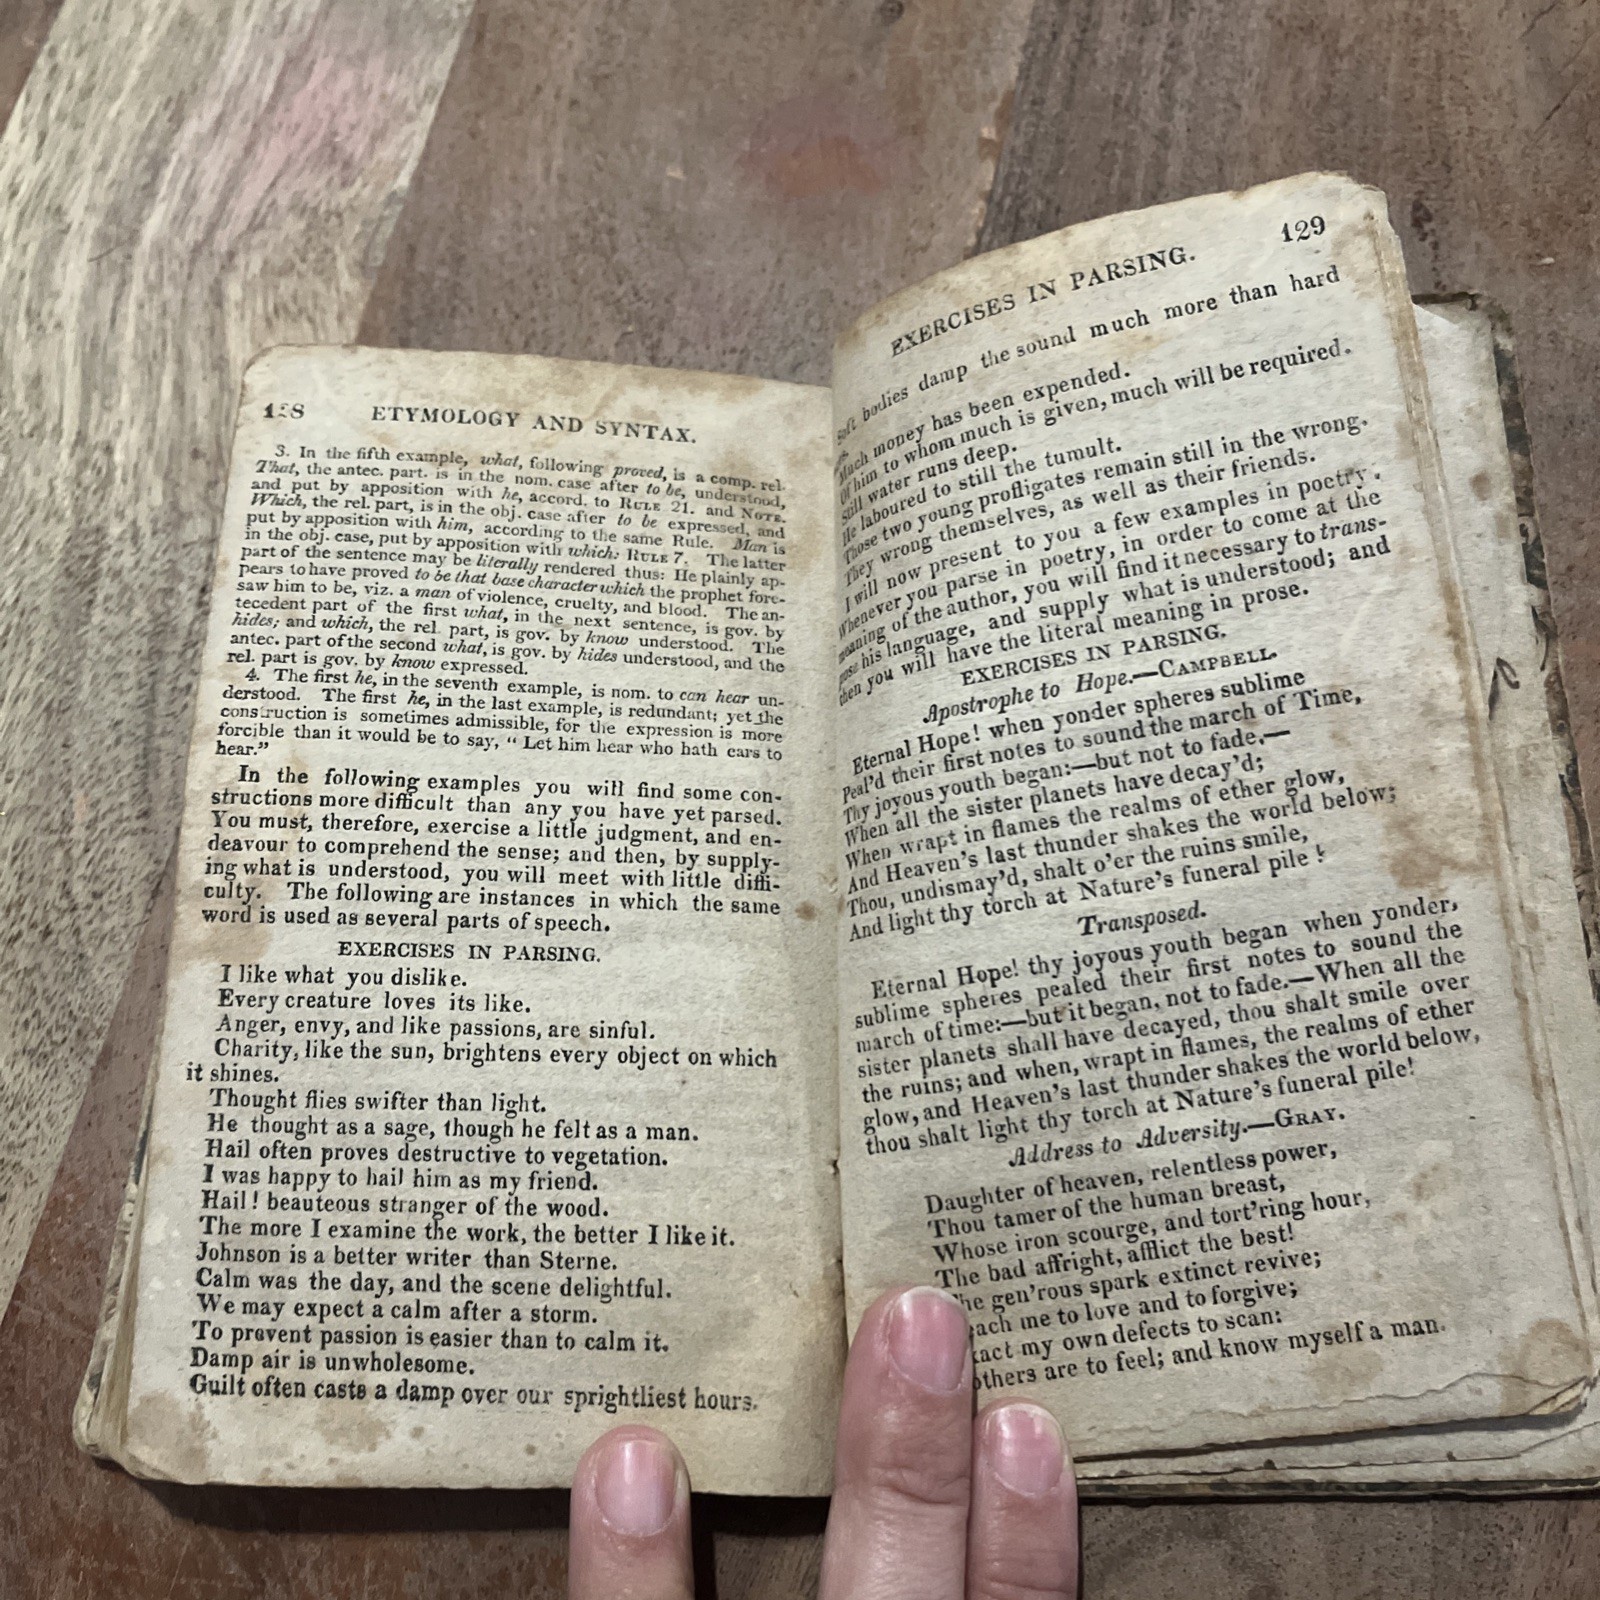 128 ETYMOLOGY AND SYNTAX.
3. In the fifth example, what, following proved, is a comp. rel.
That, the antec. part. is in the nom. case after to be, understood,
and put by apposition with he, accord. to RULE 21. and NOTE.
Which, the rel. part, is in the obj. case after to be expressed, and
put by apposition with him, according to the same Rule. Man is
in the obj. case, put by apposition with which: RULE 7. The latter
part of the sentence may be literally rendered thus: He plainly ap-
pears to have proved to be that base character which the prophet fore-
saw him to be, viz. a man of violence, cruelty, and blood. The an-
tecedent part of the first what, in the next sentence, is gov. by
hides; and which, the rel. part, is gov. by know understood. The
antec. part of the second what, is gov. by hides understood, and the
rel. part is gov. by know expressed.
4. The first he, in the seventh example, is nom. to can hear un-
derstood. The first he, in the last example, is redundant; yet the
construction is sometimes admissible, for the expression is more
forcible than it would be to say, "Let him hear who hath ears to
hear."
In the following examples you will find some con-
structions more difficult than any you have yet parsed.
You must, therefore, exercise a little judgment, and en-
deavour to comprehend the sense; and then, by supply-
ing what is understood, you will meet with little diffi-
culty. The following are instances in which the same
word is used as several parts of speech.
EXERCISES IN PARSING.
I like what you dislike.
Every creature loves its like.
Anger, envy, and like passions, are sinful.
Charity, like the sun, brightens every object on which
it shines.
Thought flies swifter than light.
He thought as a sage, though he felt as a man.
Hail often proves destructive to vegetation.
I was happy to hail him as my friend.
Hail! beauteous stranger of the wood.
The more I examine the work, the better I like it.
Johnson is a better writer than Sterne.
Calm was the day, and the scene delightful.
We may expect a calm after a storm.
To prevent passion is easier than to calm it.
Damp air is unwholesome.
Guilt often casts a damp over our sprightliest hours.
EXERCISES IN PARSING. 129
Soft bodies damp the sound much more than hard
Much money has been expended.
Of him to whom much is given, much will be required.
Still water runs deep.
He laboured to still the tumult.
Those two young profligates remain still in the wrong.
They wrong themselves, as well as their friends.
I will now present to you a few examples in poetry.
Whenever you parse in poetry, in order to come at the
meaning of the author, you will find it necessary to trans-
pose his language, and supply what is understood; and
then you will have the literal meaning in prose.
EXERCISES IN PARSING.
Apostrophe to Hope.—CAMPBELL.
Eternal Hope! when yonder spheres sublime
Peal'd their first notes to sound the march of Time,
Thy joyous youth began:—but not to fade.—
When all the sister planets have decay'd;
When wrapt in flames the realms of ether glow,
And Heaven's last thunder shakes the world below;
Thou, undismay'd, shalt o'er the ruins smile,
And light thy torch at Nature's funeral pile!
Transposed.
Eternal Hope! thy joyous youth began when yonder,
sublime spheres pealed their first notes to sound the
march of time:—but it began, not to fade.—When all the
sister planets shall have decayed, thou shalt smile over
the ruins; and when, wrapt in flames, the realms of ether
glow, and Heaven's last thunder shakes the world below,
thou shalt light thy torch at Nature's funeral pile!
Address to Adversity.—GRAY.
Daughter of heaven, relentless power,
Thou tamer of the human breast,
Whose iron scourge, and tort'ring hour,
The bad affright, afflict the best!
The gen'rous spark extinct revive;
each me to love and to forgive;
act my own defects to scan:
others are to feel; and know myself a man.